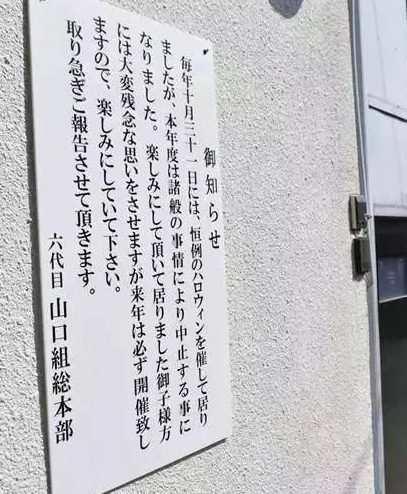 御知らせ
毎年十月三十一日には、恒例のハロウィンを催して居り
ましたが、本年度は諸般の事情により中止する事に
なりました。楽しみにして頂いて居りました御子様方
には大変残念な思いをさせますが来年は必ず開催致し
ますので、楽しみにしていて下さい。
取り急ぎご報告させて頂きます。
六代目 山口組総本部